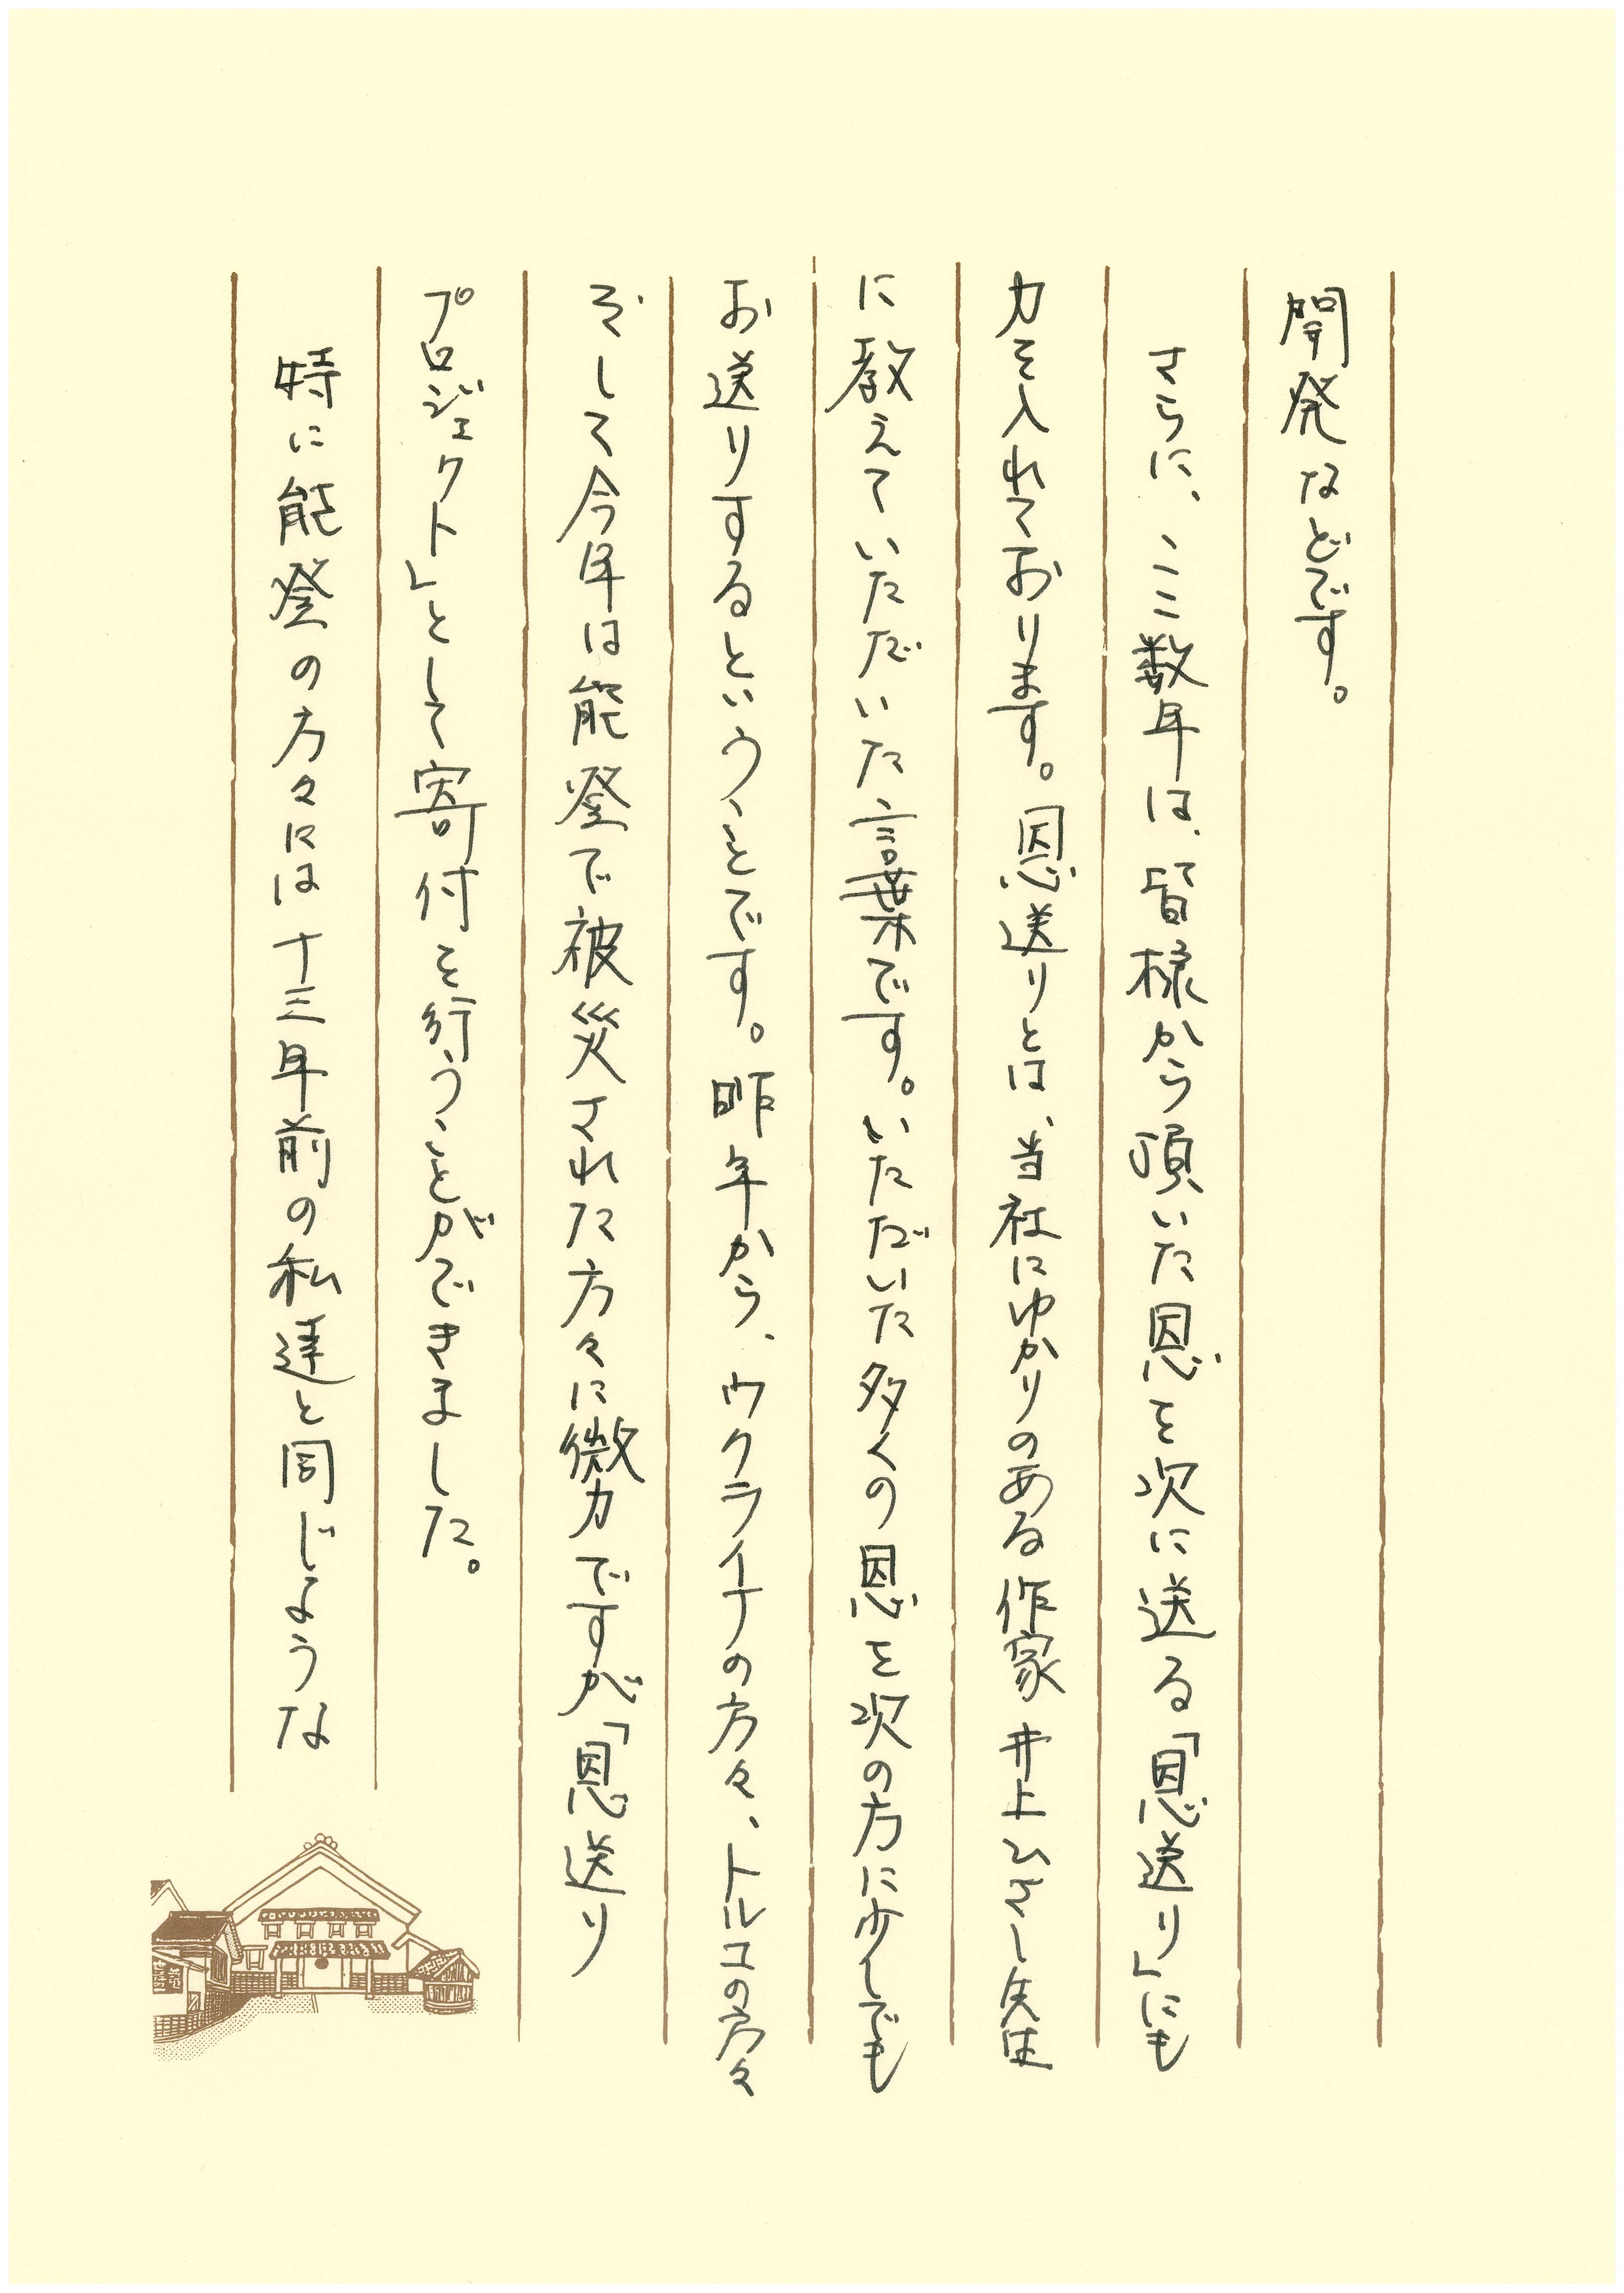 開発などです。
さらに、ここ数年は、皆様から頂いた恩を次に送る「恩送り」にも
力を入れております。恩送りとは、当社にゆかりのある作家井上ひさし先生
に教えていただいた言葉です。いただいた多くの恩を次の方に少しでも
お送りするということです。昨年から、ウクライナの方々、トルコの方々
そして今年は能登で被災された方々に微力ですが「恩送り
プロジェクト」として寄付を行うことができました。
特に能登の方々には十三年前の私達と同じような